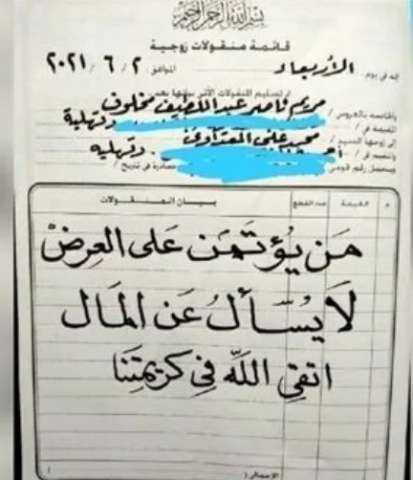 بسم الله الرحمن الرحيم
قائمة منقولات زوجية
إنه في يوم الأربعاء الموافق ٢ / ٦ / ٢٠٢١
تسليم المنقولات الآتي بيانها بعد
والخاصة بالعروس / مريم ناصر عبد اللطيف مخلوف
المقيمة في / دقهلية
إلى زوجها السيد / محمد علي المعداوي
والمقيم في / دقهليه
ويحمل رقم قومي صادرة في تاريخ /
م القيمة عدد القطع بيان المنقولات
مَن يُؤتَمَن عَلى العِرضْ
لَا يُسّأَلُ عَن المَال
اتقِ اللَّه فِي كَرِيمَتِنَا
الاجمالي